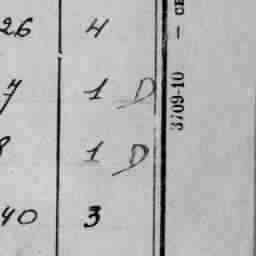 26 4
7 1 D
8 1 D
40 3
3709-10